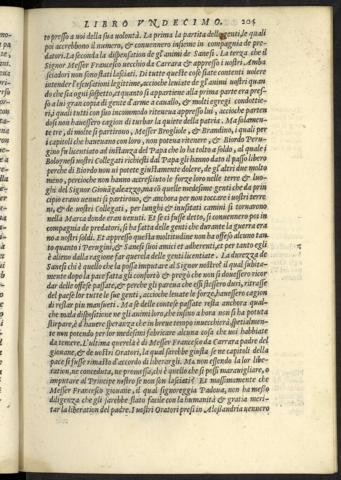 LIBRO VNDECIMO. 204
to presso a uoi della sua uolontà. La prima la partita delle genti, le quali
poi accrebbono il numero, & conuennero insieme in compagnia de pre-
datori. La seconda la dispensation de gl'animi de Sanesi. La terza che il
Signor Messer Francesco uecchio da Carrara & appresso i nostri. Amba
sciadori non sono stati lasciati. Di tutte queste cose siate contenti uolere
intender l'escusationi legittime, acciocche leuiate de gl'animi uostri quan
do che sia ogni sospetto, et quanto si appartiene alla prima parte era pres-
so a lui gran copia di gente d'arme a cauallo, & molti egregi condottie-
ri, i quali tutti con suo incommodo riteneua appresso lui, accioche parten
dosi non hauessero cagion di turbar la quiete della patria. Ma solamen-
te tre, di molte si partirono, Messer Broglide, & Brandino, i quali per
i capitoli che haueuano con loro, non poteua ritenere, & Biordo Peru-
gino fu licentiato ad instanza del Papa che lo ha tolto a soldo, al quale i
Bolognesi uostri Collegati richiesti dal Papa gli hanno dato il passo libero
perche di Biordo non ui potete giustamente dolere, de gl'altri due molto
meno, peroche non hanno accresciuto le forze loro nelle terre & luo-
ghi del Signor Giouãgaleazzo, ma cõ quelle medesime genti che da prin-
cipio erano uenuti si partirono, & anchora per non toccare i uostri terre-
ni, & de uostri Collegati, per lunghi & inusitati camini si tornarono
nella Marca donde eran uenuti. Et se ci fusse detto, si conuennero poi in
compagnia de predatori, si ha fatta delle genti che durante la guerra era
no a uostri soldi. Et appresso questa moltitudine non ha offeso alcuno tan-
to quanto i Perugini, & Sanesi suoi amici et adherenti, et per tanto egli
è alieno dalla ragione far querela delle genti licentiate. La durezza de
Sanesi chi è quello che la possa imputare al Signor nostro? il qual subita-
mente dopo la pace fatta gli confortò & pregò che non si douessero ricor
dar delle offese passate, & perche gli pareua che essi stessero duri, ritrasse
del paese lor tutte le sue genti, accioche leuate le forze, hauessero cagion
di restar piu mansueti. Ma se delle contese passate resta anchora qual-
che mala dispositione ne gli animi loro, che insino a hora non si ha potuta
stirpare, è d'hauere speranza che in breue tempo inuecchierà, spetialmen-
te non potendo pur lor medesimi fabricare alcuna cosa che uoi habbiate
da temere. L'ultima querela è di Messer Francesco da Carrara padre del
giouane, & de uostri Oratori, la qual sarebbe giusta se ne capitoli della
pace si fusse rimasto d'accordo di liberargli. Ma non essendo la lor libe-
ration, ne conceduta, ne promessa, chi è quello che si possi marauigliare, o
imputare al Principe nostro se non son lasciati? Et massimamente che
Messer Francesco giouane, il qual signoreggia Padoua, non ha messo
diligenza che gli sarebbe stato facile con la humanità & gratia meri-
tar la liberation del padre. I uostri Oratori presi in Alessandria uennero